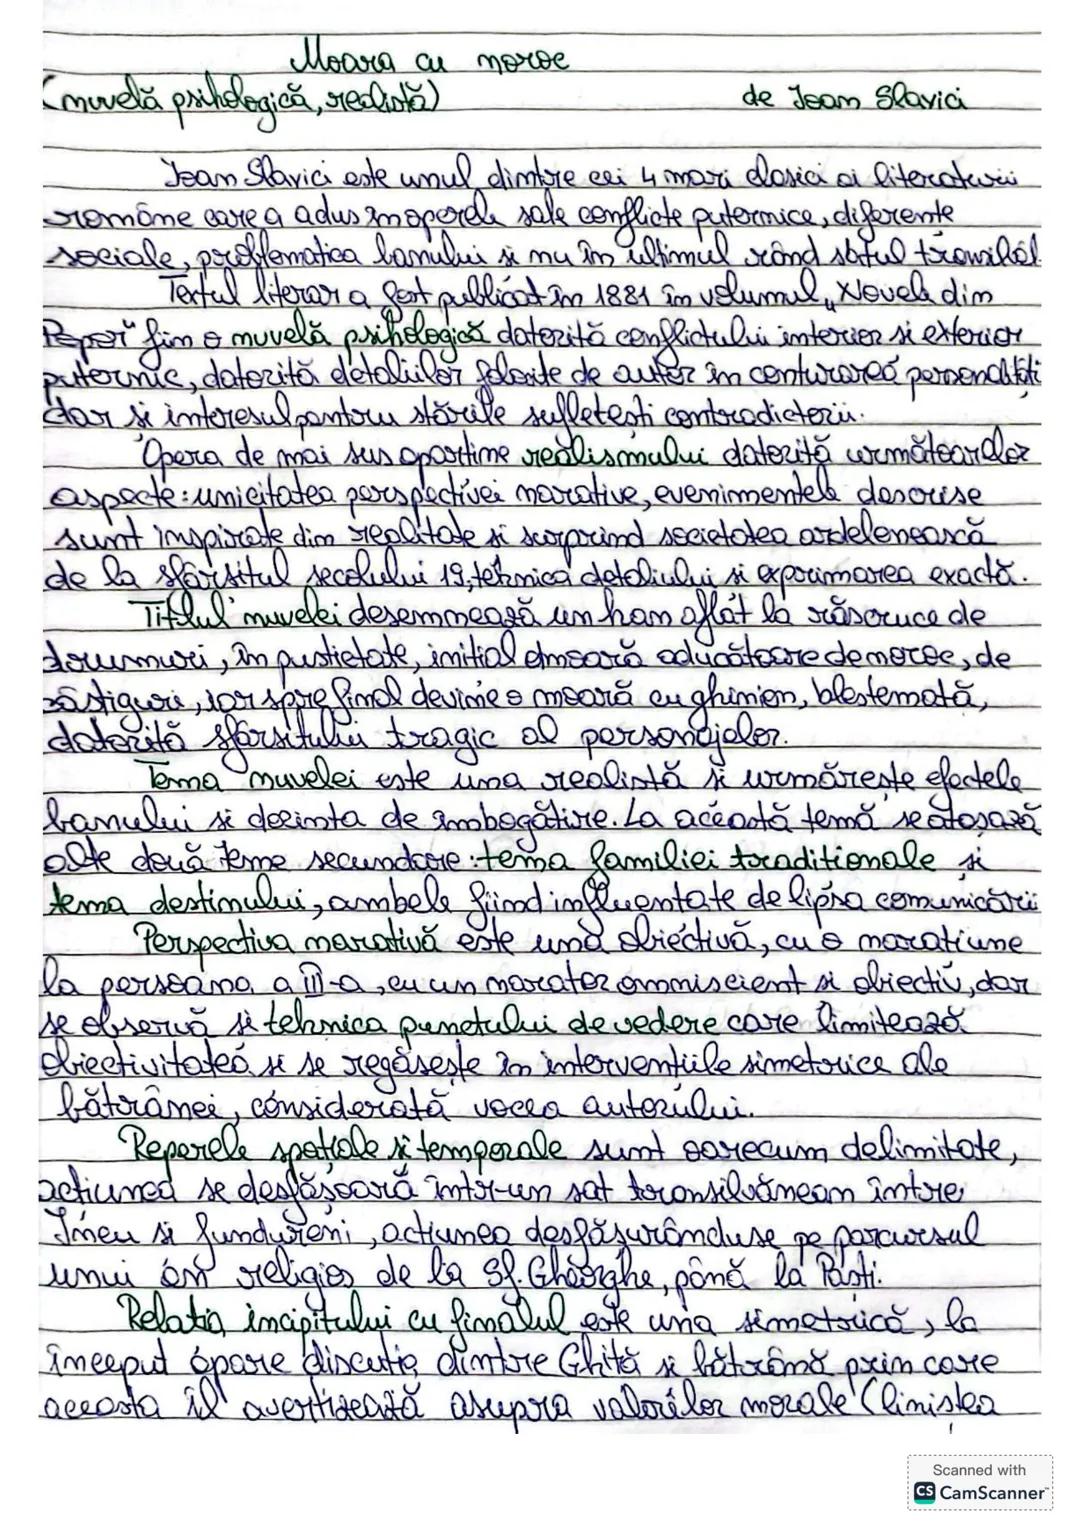 Moara cu noroc
(nuvelă psihologică, realistă) de Ioan Slavici
Ioan Slavici este unul dintre cei 4 mari clasici ai literaturii
române care a adus în operele sale conflicte puternice, diferențe
sociale, problematica banului și nu în ultimul rând satul transilvă.
Textul literar a fost publicat în 1881 în volumul „Novele din
Popor" fiin o nuvelă psihologică datorită conflictului interior și exterior
puternic, datorită detaliilor folosite de autor în conturarea personalități
dar și interesul pentru stările sufletești contradictorii.
Opera de mai sus aparține realismului datorită următoarelor
aspecte: unicitatea perspectivei narative, evenimentele descrise
sunt inspirate din realitate și surprind societatea ardelenească
de la sfârșitul secolului 19, tehnica detaliului și exprimarea exactă.
Titlul nuvelei desemnează un han aflat la răscruce de
drumuri, în pustietate, inițial o moară aducătoare de noroc, de
câștiguri, iar spre final devine o moară cu ghinion, blestemată,
datorită sfârșitului tragic al personajelor.
Tema nuvelei este una realistă și urmărește efectele
banului și dorința de îmbogățire. La această temă se atașază
alte două teme secundare: tema familiei tradiționale și
tema destinului, ambele fiind influențate de lipsa comunicării
Perspectiva narativă este una obiectivă, cu o narațiune
la persoana a III-a, cu un narator omniscient și obiectiv, dar
se observă și tehnica punctului de vedere care limitează
obiectivitatea și se regăsește în intervențiile simetrice ale
bătrânei, considerată vocea autorului.
Reperele spațiale și temporale sunt oarecum delimitate,
acțiunea se desfășoară într-un sat transilvănean între
Ineu și Fundureni, acțiunea desfășurânduse pe parcursul
unui an religios de la Sf. Gheorghe, până la Paști.
Relația incipitului cu finalul este una simetrică, la
început apare discuția dintre Ghiță și bătrână prin care
aceasta îl avertizează asupra valorilor morale (liniștea
Scanned with
CS CamScanner